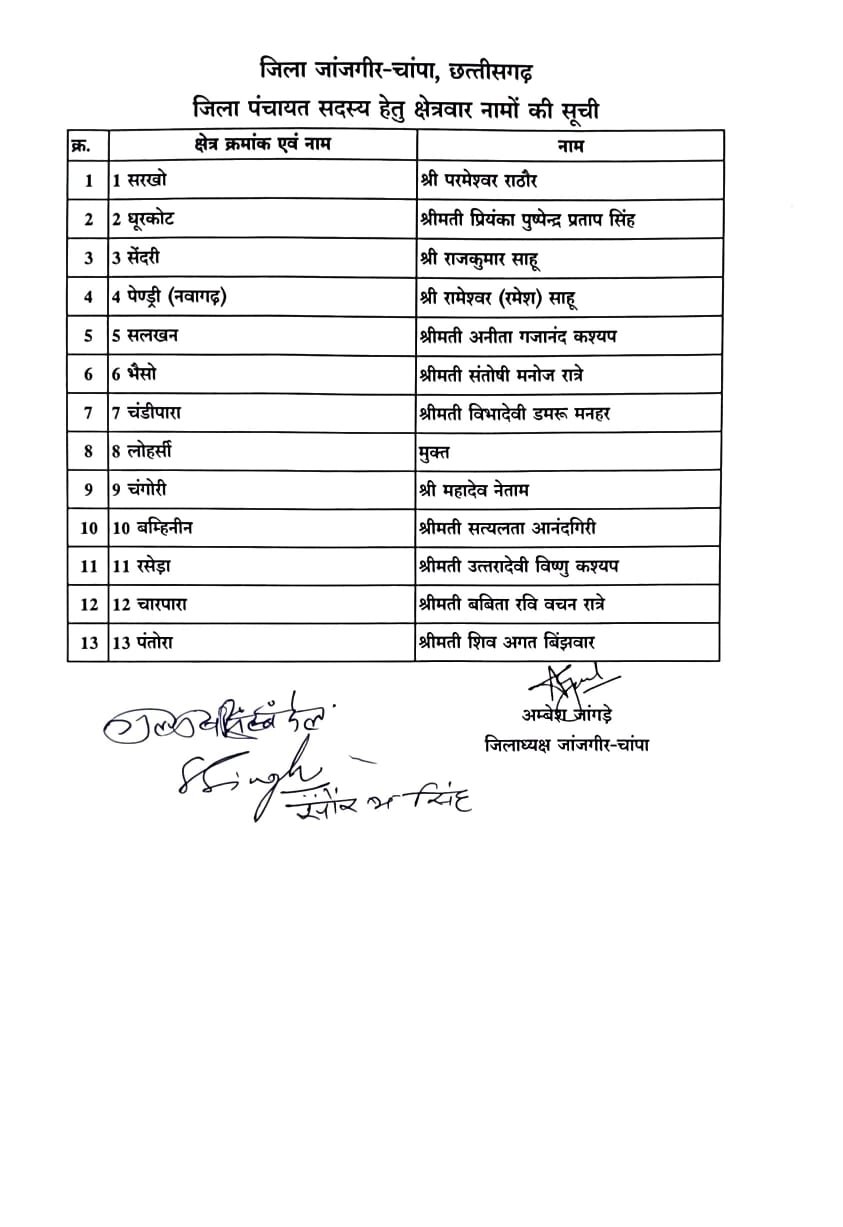 जिला जांजगीर-चांपा, छत्तीसगढ़
जिला पंचायत सदस्य हेतु क्षेत्रवार नामों की सूची
क्र. क्षेत्र क्रमांक एवं नाम नाम
1 1 सरखो श्री परमेश्वर राठौर
2 2 घूरकोट श्रीमती प्रियंका पुष्पेन्द्र प्रताप सिंह
3 3 सेंदरी श्री राजकुमार साहू
4 4 पेण्ड्री (नवागढ़) श्री रामेश्वर (रमेश) साहू
5 5 सलखन श्रीमती अनीता गजानंद कश्यप
6 6 भैसो श्रीमती संतोषी मनोज रात्रे
7 7 चंडीपारा श्रीमती विभादेवी डमरू मनहर
8 8 लोहर्सी मुक्त
9 9 चंगोरी श्री महादेव नेताम
10 10 बम्हिनीन श्रीमती सत्यलता आनंदगिरी
11 11 रसेड़ा श्रीमती उत्तरादेवी विष्णु कश्यप
12 12 चारपारा श्रीमती बबिता रवि वचन रात्रे
13 13 पंतोरा श्रीमती शिव अगत बिंझवार
अम्बेश जांगड़े
जिलाध्यक्ष जांजगीर-चांपा
SSingh
सिंह